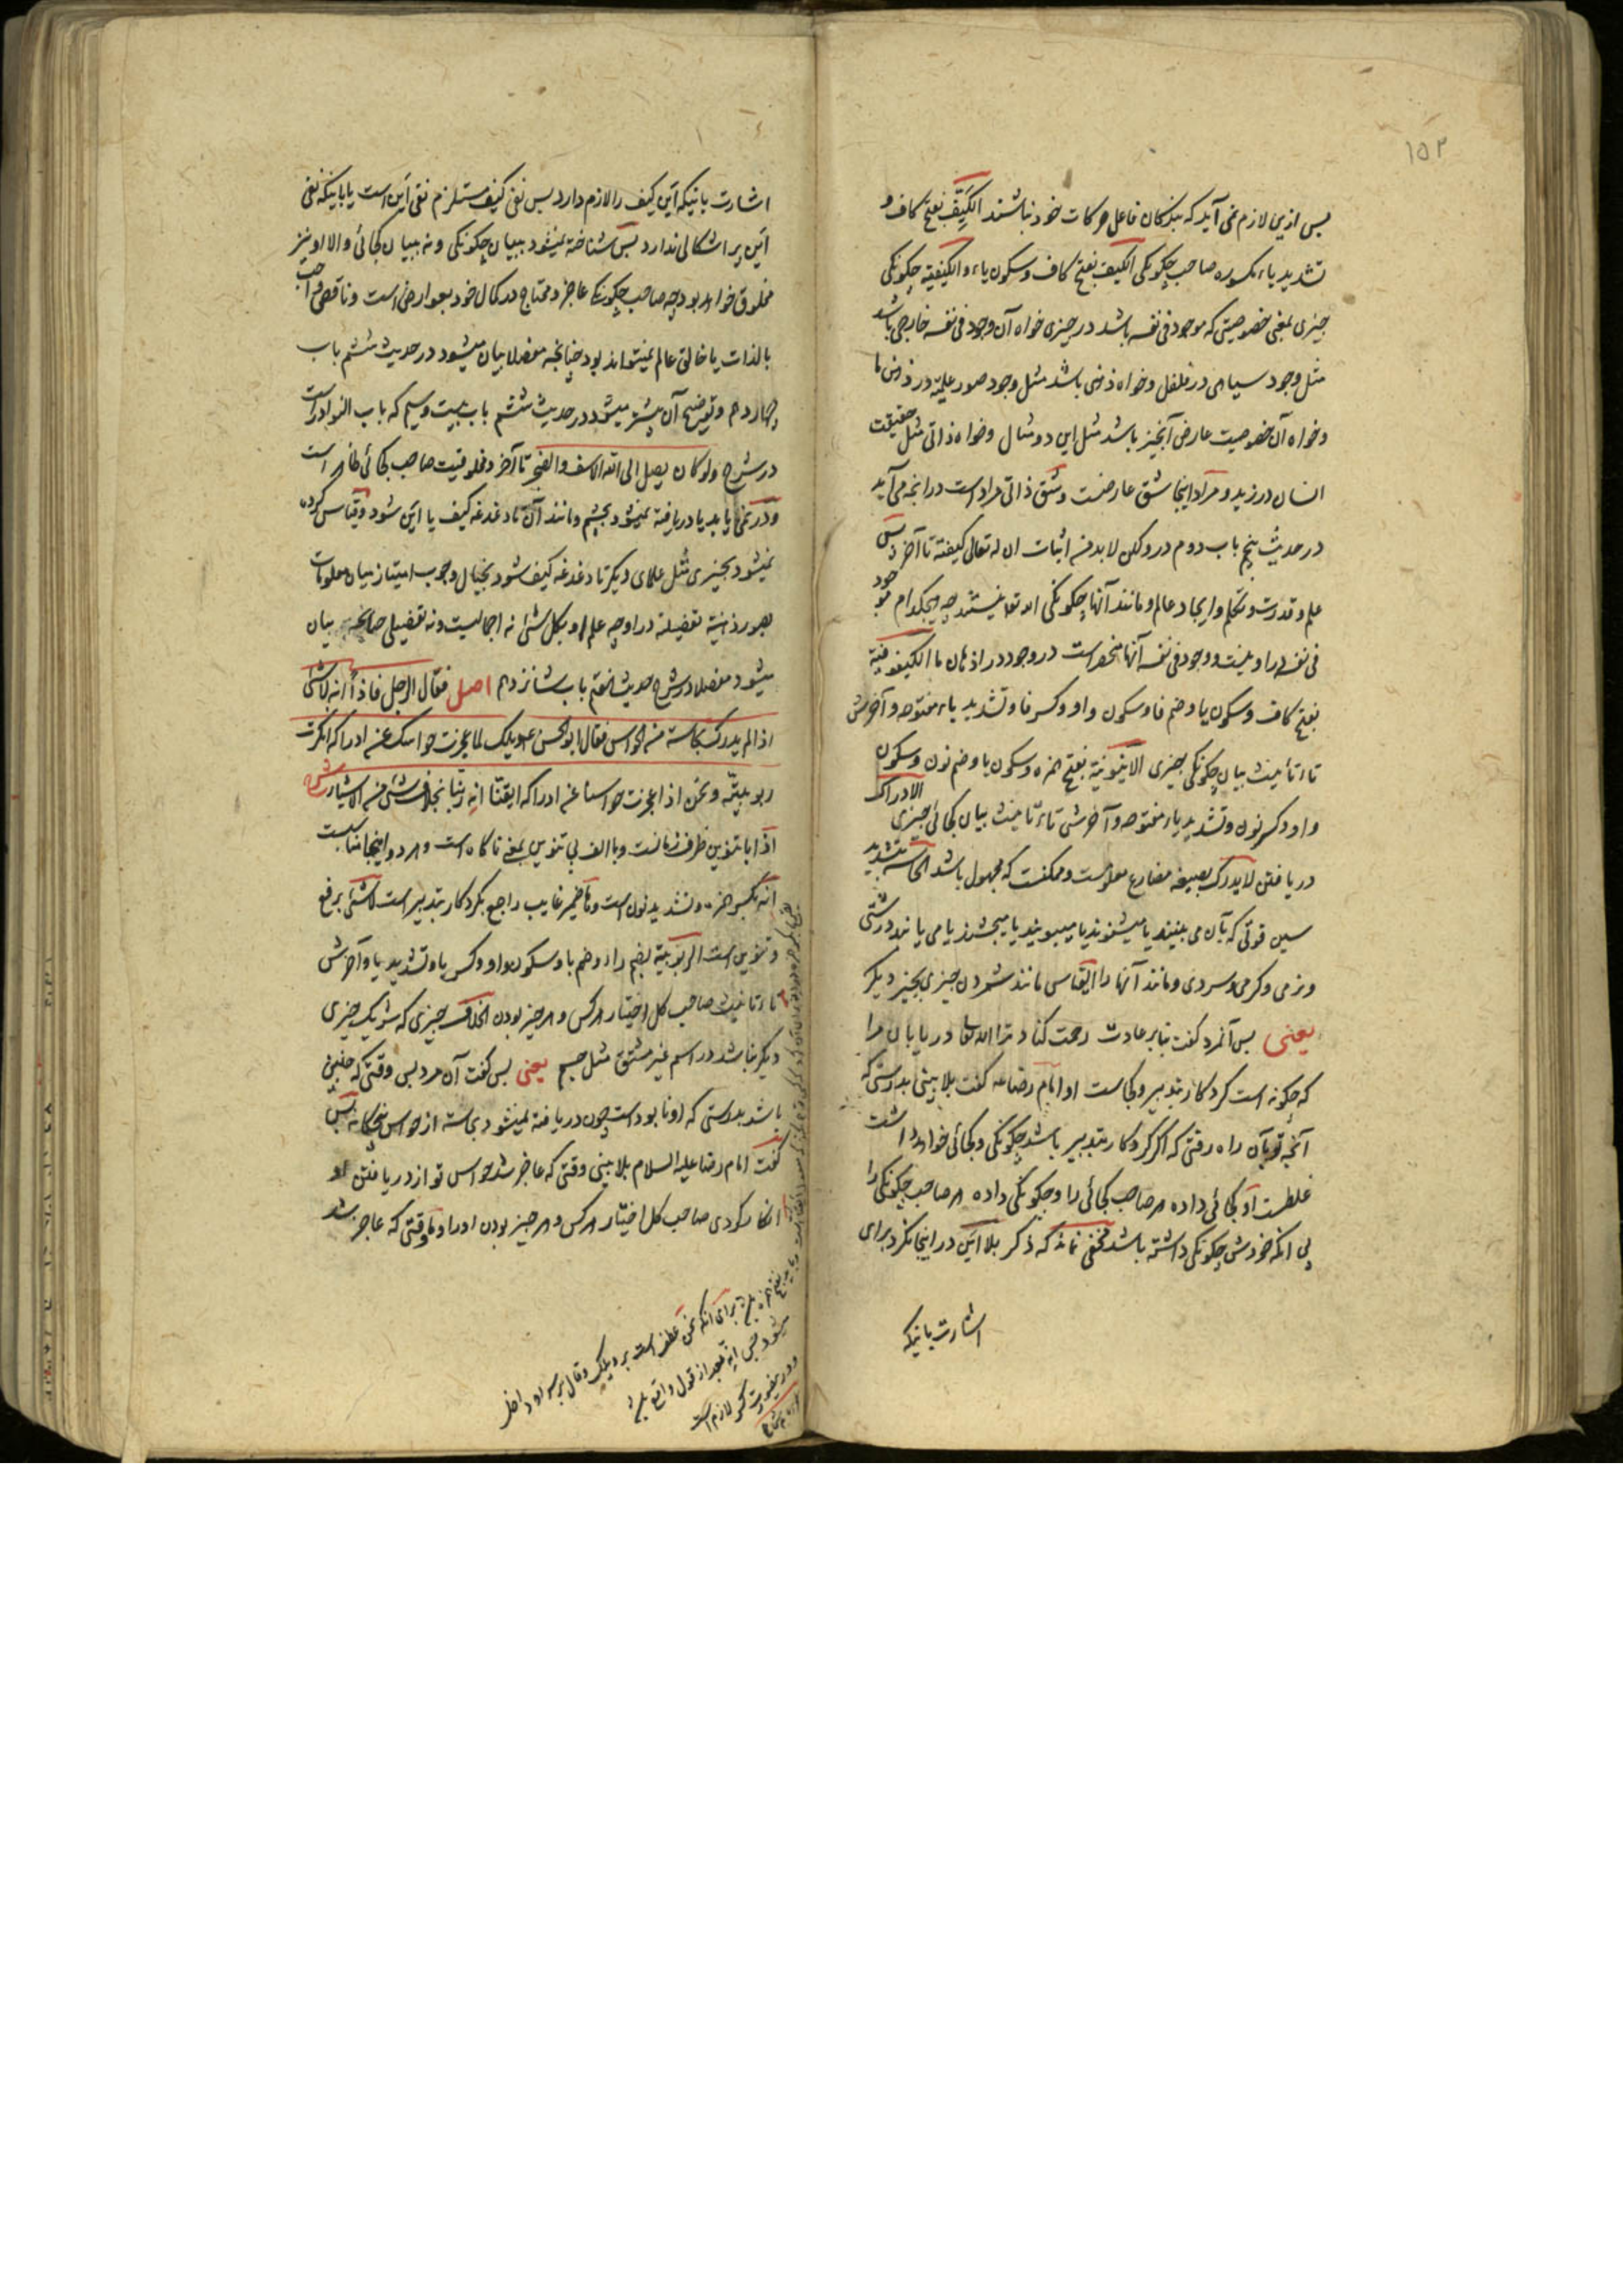 ۱۵۳
پس ازین لازم نمی آید که بندگان فاعل حرکات خود نباشند الکیّف بفتح کاف و
تشدید یاء مکسوره صاحب چگونگی الکیف بفتح کاف و سکون یاء و الکیفیة چگونگی
چیزی بمعنی خصوصیتی که موجود فی نفسه باشد در چیزی خواه آن وجود فی نفسه خارجی باشد
مثل وجود سیاهی در فلفل و خواه ذهنی باشد مثل وجود صور علمیه در ذهن ما
و خواه آن خصوصیت عارض آنچیز باشد مثل این دو مثال و خواه ذاتی مثل حقیقت
انسان در زید و مراد اینجا شق عارضست و شق ذاتی مراد است در آنچه می آید
در حدیث پنجم باب دوم در ولکن لابد من اثبات ان له تعالی کیفیة تا آخر پس
علم و قدرت و تکلم و ایجاد عالم و مانند آنها چگونگی الله تعالی نیستند چه هیچکدام موجود
فی نفسه در او نیست و وجود فی نفسه آنها منحصر است در وجود در اذهان ما الکیفوفیة
بفتح کاف و سکون یا و ضم فا و سکون واو و کسر فا و تشدید یاء مفتوحه و آخرش
تاء تأنیث بیان چگونگی چیزی الاینونیة بفتح همزه و سکون یا و ضم نون و سکون
واو و کسر نون و تشدید یاء مفتوحه و آخرش تاء تأنیث بیان کجائی چیزی الادراک
دریافتن لایدرک بصیغه مضارع معلومست و ممکنست که مجهول باشد الحاسّة بتشدید
سین قوتی که بآن می بینند یا میشنوند یا میبویند یا میچشند یا می یابند درشتی
و نرمی و گرمی و سردی و مانند آنها را القیاس مانند شمردن چیزی بچیز دیگر
یعنی پس آنمرد گفت بنابر عادت رحمت کناد ترا الله تعالی دریابان مرا
که چگونه است کردگار بتدبیر و کجاست او امام رضا ع گفت بلا بینی بدرستی که
آنچه تو بآن راه رفتی که اگر کردگار بتدبیر باشد چگونگی و کجائی خواهد داشت
غلطست او کجائی داده هر صاحب کجائی را و چگونگی داده هر صاحب چگونگی را
بی آنکه خودش چگونگی داشته باشد مخفی نماند که ذکر بلا این در اینجا نکرد برای
اشارت باینکه
اشارت باینکه این کیف را لازم دارد پس نفی کیف مستلزم نفی این است یا باینکه نفی
این پر اشکالی ندارد پس شناخته نمیشود ببیان چگونگی و نه ببیان کجائی والا او نیز
مخلوق خواهد بود چه صاحب چگونگی عاجز و محتاج در کمال خود بعوارض است و ناقص واجب
بالذات یا خالق عالم نمیتواند بود چنانچه مفصلا بیان میشود در حدیث ششم باب
چهاردهم و توضیح آن بیشتر میشود در حدیث ششم باب بیست و سیم که باب النوادر است
در شرح ولو کان یصل الی الله الاسف و الضجر تا آخر و مخلوقیت صاحب کجائی ظاهر است
و در نمی یابد یا دریافته نمیشود بچشم و مانند آن تا دغدغه کیف یا این شود و قیاس کرده
نمیشود بچیزی مثل علمای دیگر تا دغدغه کیف شود بخیال وجوب امتیاز میان معلومات
بصور ذهنیه تفصیلیه در او چه علم او بکل شئ نه اجمالیست و نه تفصیلی چنانچه بیان
میشود مفصلا در شرح حدیث هفتم باب شانزدهم اصل فقال الرجل فاذا انه لا شئ
اذا لم یدرک بحاسة من الحواس فقال ابو الحسن ع ویلک لما عجزت حواسک عن ادراکه انکرت
ربوبیته و نحن اذا عجزت حواسنا عن ادراکه ایقنا انه ربنا بخلاف شئ من الاشیاء شرح
اذا با تنوین ظرف زمانست و با الف بی تنوین بمعنی ناگاه است و هر دو اینجا مناسبست
انه بکسر همزه و تشدید نون است و ضمیر غایب راجع بکردگار بتدبیر است لا شئ برفع
و تنوین است الربوبیة بضم راء و ضم با و سکون واو و کسر با و تشدید یا و آخرش
تاء تأنیث صاحب کل اختیار هر کس و هر چیز بودن الخلاف چیزی که شریک چیزی
دیگر نباشد در اسم غیر مشتق مثل جسم یعنی پس گفت آن مرد پس وقتی که چنین
باشد بدرستی که او نابود است چون دریافته نمیشود بحاسه از حواس پنجگانه پس
گفت امام رضا علیه السلام بلا بینی وقتی که عاجز شد حواس تو از دریافتن او
انکار کردی صاحب کل اختیار هر کس و هر چیز بودن او را و ما وقتی که عاجز شد
برای آنکه نحن عطف است بر ویلک و قال بر سر او داخل
میشود پس انه بعد از قول واقع
و در کسر لازم است